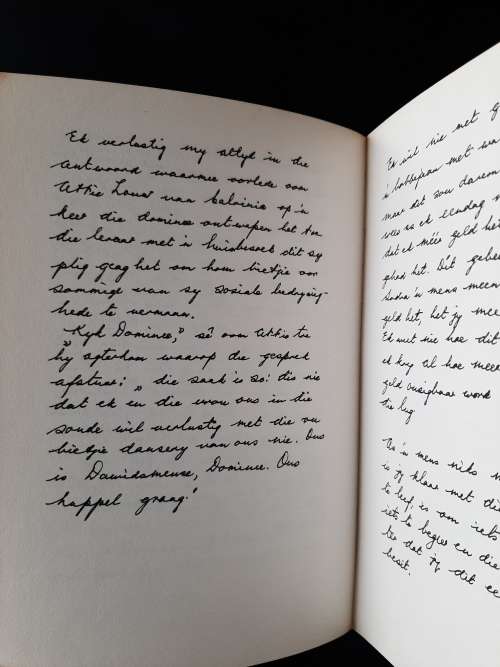 Ek verlustig my altyd in die
antwoord waarmee oorlede oom
Attie Louw van Calvinia op 'n
keer die dominee ontwapen het toe
die leraar met 'n huisbesoek dit sy
plig geag het om hom bietjie oor
sommige van sy sosiale bedrywig-
hede te vermaan.
„Kyk Dominee," sê oom Attie toe
hy agterkom waarop die gesprek
afstuur: „die saak is so: dis nie
dat ek en die vrou ons in die
sonde wil verlustig met die ou
bietjie dansery van ons nie. Ons
is Dawidsmense, Dominee. Ons
huppel graag!
Ek wil nie met
'n bottelpan met
maar dit sou darem
wees as ek eendag
dat ek méér geld het
gehad het. Dit gebeur
Sodra 'n mens meen
geld het, het jy meer
Ek weet nie hoe dit
ek kry al hoe meer
geld onsigbaar word
die lug.
As 'n mens niks
is jy klaar met die
te leef, is om iets
iets te begeer en die
toe dat jy dit
besit.